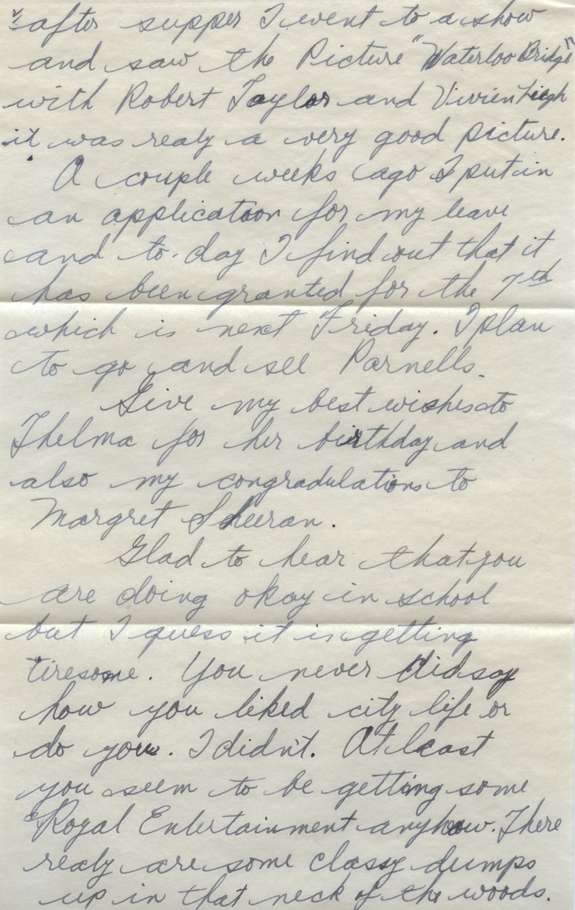 after supper I went to a show
and saw the Picture "Waterloo Bridge"
with Robert Taylor and Vivien Leigh
it was realy a very good picture.
A couple weeks ago I put in
an application for my leave
and to-day I find out that it
has been granted for the 7th
which is next Friday. I plan
to go and see Parnells.
Give my best wishes to
Thelma for her birthday and
also my congradulations to
Margret Sheeran.
Glad to hear that you
are doing okay in school
but I guess it is getting
tiresome. You never did say
how you liked city life or
do you. I didn't. At least
you seem to be getting some
Royal Entertainment anyhow. There
realy are some classy dumps
up in that neck of the woods.